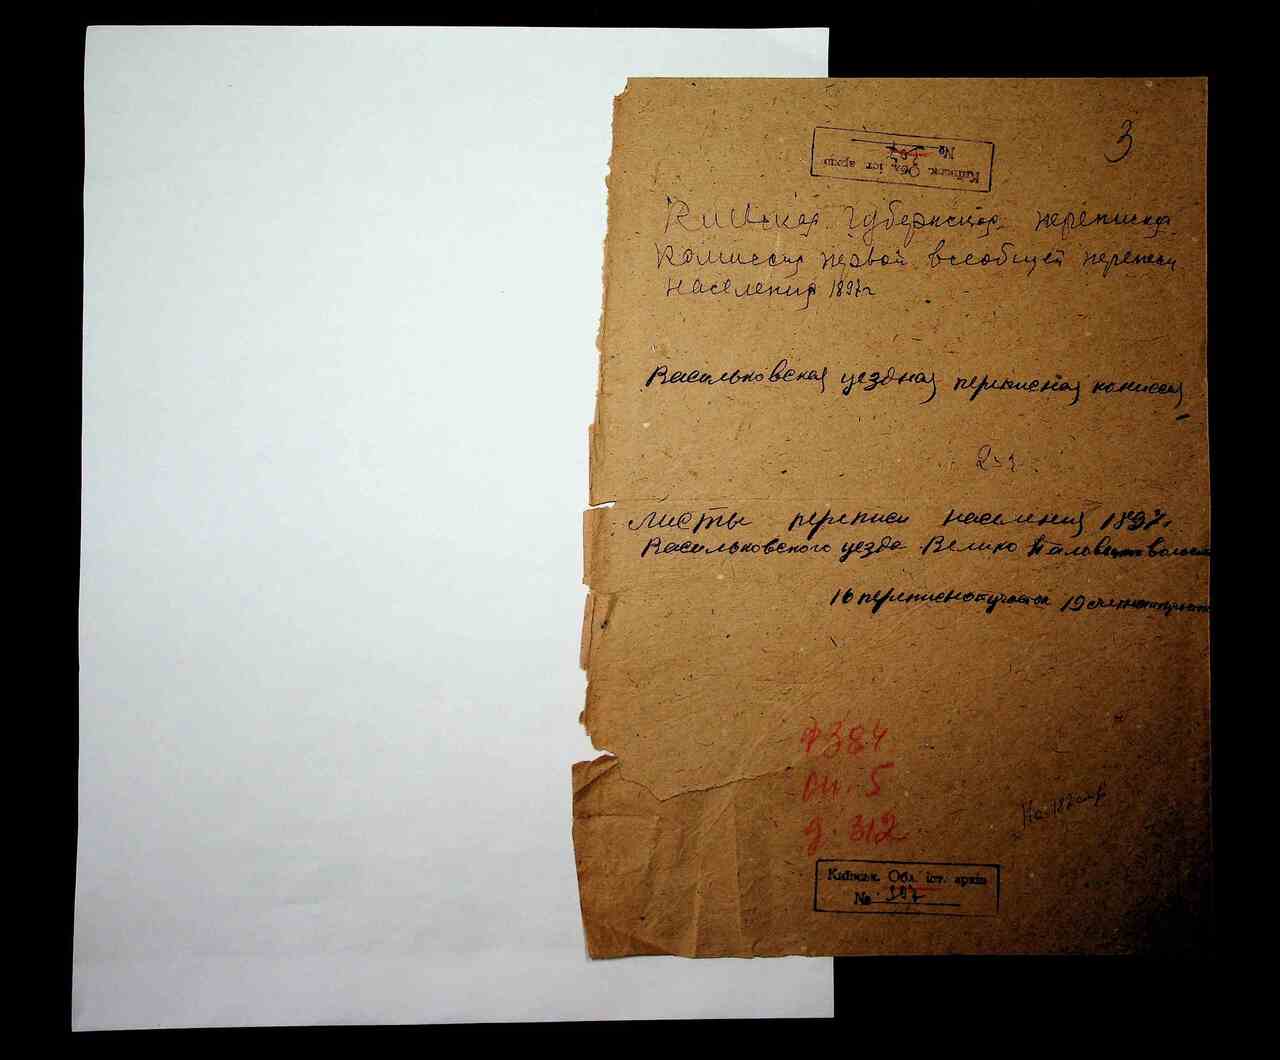 3
Київськ. Обл. іст. архів
№
Киевская губернская переписная
комиссия первой всеобщей переписи
населения 1897г
Васильковская уездная переписная комиссия
Листы переписи населения 1897г.
Васильковского уезда Велико
16 переписного участка 19 счетного участка
ф 384
оп. 5
д. 312
На 182 стр
Київськ. Обл. іст. архів
№ 397